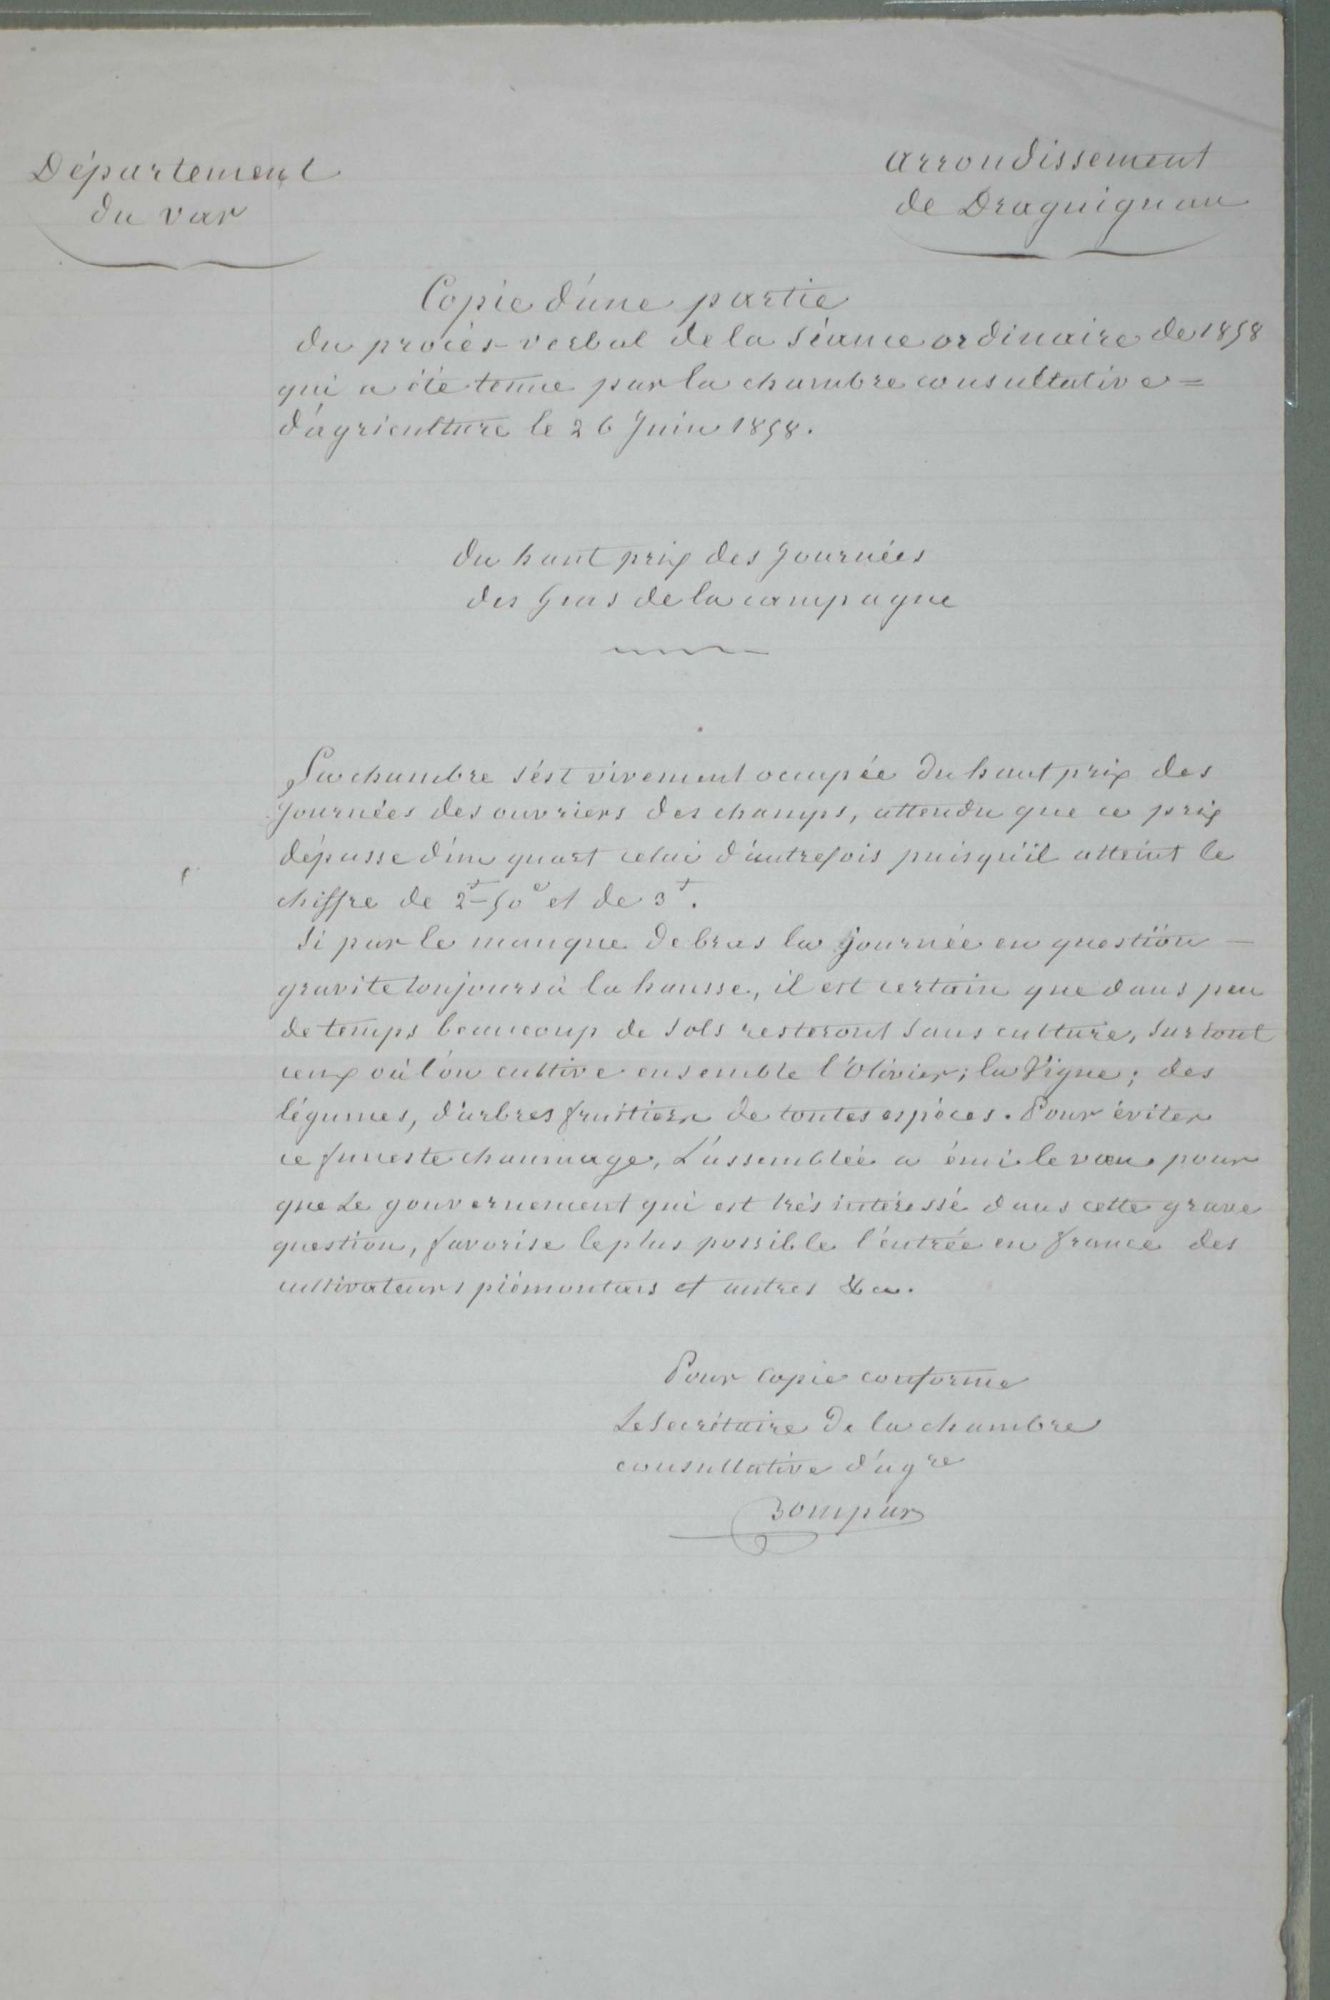 Département
du var
arrondissement
de Draguignan
Copie d'une partie
du procès-verbal de la Séance ordinaire de 1858
qui a été tenue par la chambre consultative =
d'agriculture le 26 Juin 1858.
du haut prix des Journées
des Gens de la campagne
La chambre s'est vivement occupée du haut prix des
Journées des ouvriers des champs, attendu que ce prix
dépasse d'un quart celui d'autrefois puisqu'il atteint le
chiffre de 2f-50c et de 3f.
Si par le manque de bras la journée en question -
gravite toujours à la hausse, il est certain que dans peu
de temps beaucoup de sols resteront sans culture, surtout
ceux où l'on cultive ensemble l'Olivier; la Vigne; des
légumes, d'arbres fruitiers de toutes espèces. Pour éviter
ce funeste chaumage, L'assemblée a émi le vœu pour
que Le gouvernement qui est très intéressé dans cette grave
question, favorise le plus possible l'entrée en france des
cultivateurs piémontais et autres &a.
Pour copie conforme
Le Secrétaire de la chambre
consultative d'agre
Bompar